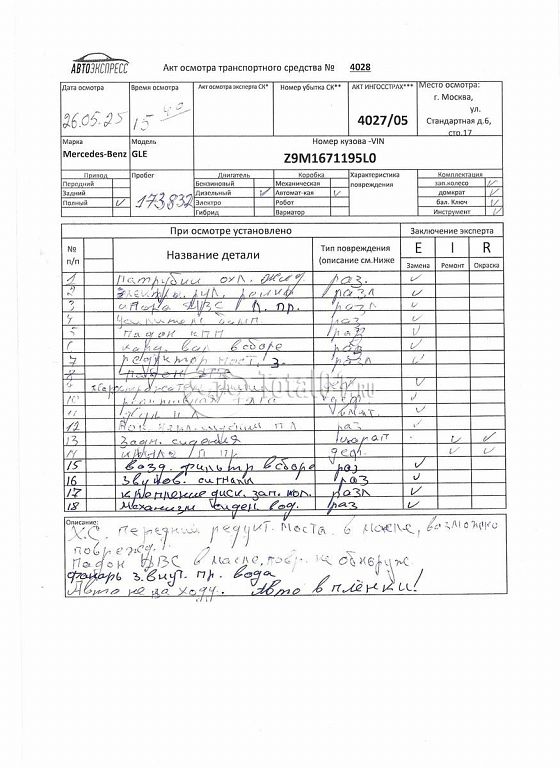 АВТОЭКСПРЕСС
Акт осмотра транспортного средства № 4028
Дата осмотра Время осмотра Акт осмотра эксперта СК* Номер убытка СК** АКТ ИНГОССТРАХ*** Место осмотра:
26.05.25 15 40 4027/05 г. Москва, ул. Стандартная д.6, стр.17
Марка Модель Номер кузова -VIN
Mercedes-Benz GLE Z9M1671195L0
Привод Пробег Двигатель Коробка Характеристика повреждения Комплектация
Передний 173832 Бензиновый Механическая зап.колесо ✓
Задний Дизельный ✓ Автомат-кая ✓ домкрат ✓
Полный ✓ Электро Робот бал. Ключ ✓
Гибрид Вариатор Инструмент ✓
При осмотре установлено Заключение эксперта
№ п/п Название детали Тип повреждения (описание см.Ниже E I R
Замена Ремонт Окраска
1 патрубки охл. раз. ✓
2 рул. разл ✓
3 опора ДВС Л. пр. разл ✓
4 раз ✓
5 падон КПП раз ✓
6 кард вал в сборе раз ✓
7 редуктор мост з. разл ✓
8
9 ✓
10 тяга деф ✓
11 ✓
12 пл раз ✓
13 Задн. сидения ✓ ✓
14 п пр деф. ✓ ✓
15 возд. фильтр в сборе раз ✓
16 Звуков. сигнал раз ✓
17 крепление диск. зап. кол. разл ✓
18 механизм сиден вод. раз ✓
Описание:
Х.С. передний редукт. моста в масле, возможно
поврежд.
падон ДВС в масле, повр. не обнаруж
фонарь з. внут. пр. вода
Авто не на ходу. Авто в плёнки!
Total01.ru